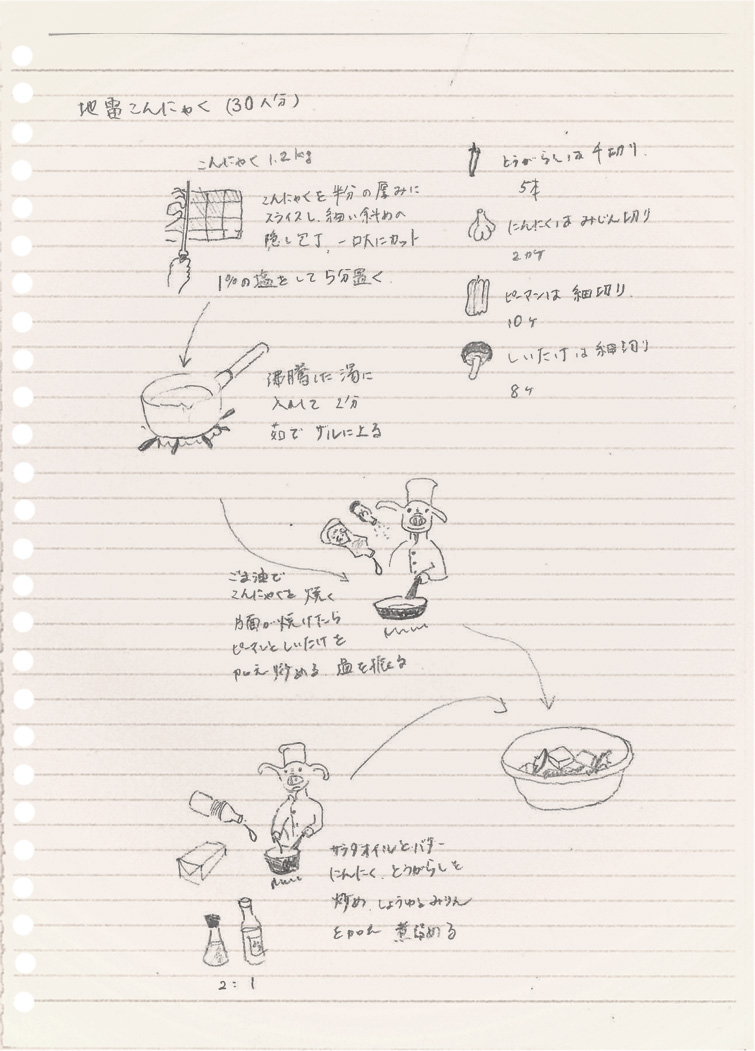 地雷こんにゃく (30人分)
こんにゃく 1.2kg
こんにゃくを半分の厚みに
スライスし、細い斜めの
隠し包丁、一口大にカット
1%の塩をして5分置く
とうがらしは千切り
5本
にんにくはみじん切り
2カケ
ピーマンは細切り
10ケ
しいたけは細切り
8ケ
沸騰した湯に
入れて 2分
茹で ザルに上る
ごま油で
こんにゃくを焼く
片面が焼けたら
ピーマンとしいたけを
加え炒める 塩を振る
サラダオイルとバター
にんにく、とうがらしを
炒め しょうゆとみりん
を加え 煮詰める
2:1